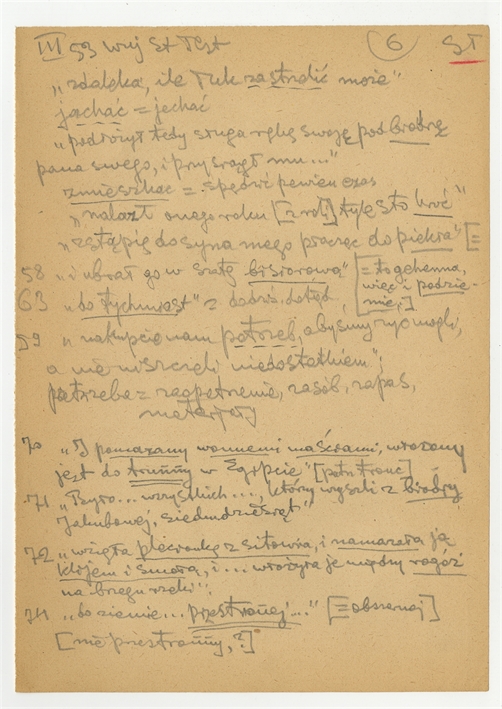 III 53 Wuj St Test 6 ST
„zdaleka, ile łuk zastrzelić może”
jachać = jechać
„podłożył tedy sługa rękę swoję pod biodrę
pana swego, i przysiągł mu...”
zmieszkać = spędzić pewien czas
„nalazł onego roku [z roli] tyle sto kroć”
„zstąpię do syna mego płacząc do piekła” [=
58 „i ubrał go w szatę bisiorową” [= to gehenna,
63 „do tychmiast” = dotąd więc i podzie-
mie,]
59 „nakupcie nam potrzeb, abyśmy żyć mogli,
a nie niszczeli niedostatkiem”;
potrzeba = zaopatrzenie, zasób, zapas,
materiały
70 „I pomazany wonnemi maściami, włożony
jest do trunny w Egipcie”
71 „Było... wszystkich..., którzy wyszli z biodry
Jakubowej, siedmdziesiąt”
72 „wzięła plecionkę z sitowia, i namazała ją
klijem i smołą, i... włożyła je między rogóż
na brzegu rzeki”;
74 „do ziemie... przestronej...” [= obszernej]
[nie przestronny,?]